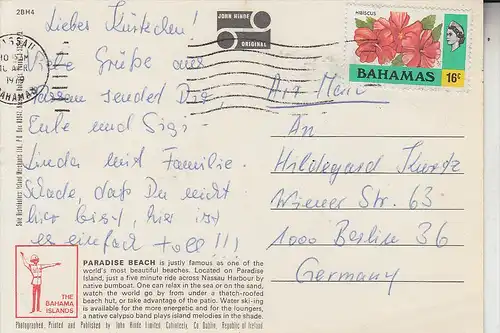 2BH4
Lieber Kürtchen!
Viele Grüße aus
Nassau sendet Dir
Eule und Sigi
Linda mit Familie.
Schade, daß Du nicht
hier bist, hier ist
es einfach toll!!!
JOHN HINDE
ORIGINAL
NASSAU
1979
BAHAMAS
HIBISCUS
BAHAMAS 16c
Air Mail
An
Hildegard Kurtz
Wiener Str. 63
1000 Berlin 36
Germany
Sole Distributors: Island Merchants Ltd., P.O. Box
THE
BAHAMA
ISLANDS
PARADISE BEACH is justly famous as one of the
world's most beautiful beaches. Located on Paradise
Island, just a five minute ride across Nassau Harbour by
native bumboat. One can relax in the sea or on the sand,
watch the world go by from under a thatch-roofed
beach hut, or take advantage of the patio. Water ski-ing
is available for the more energetic and for the loungers,
a native calypso band plays island melodies in the shade.
Photographed, Printed and Published by John Hinde Limited, Cabinteely, Co. Dublin, Republic of Ireland